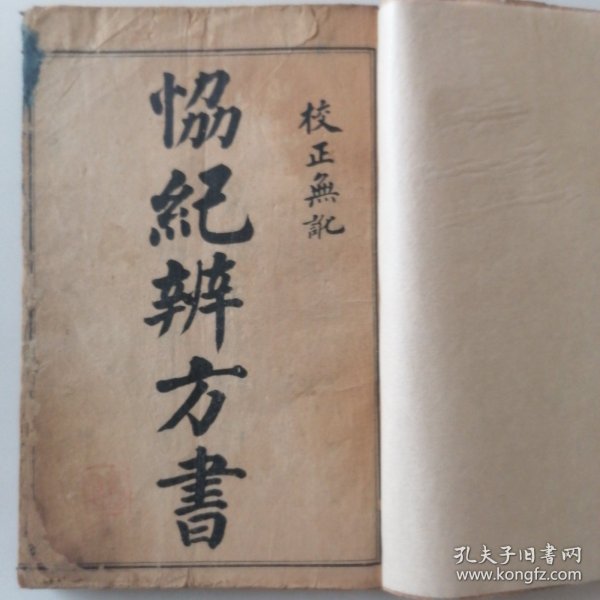 校正無訛
恊紀辨方書
孔夫子旧书网
www.kongfz.com